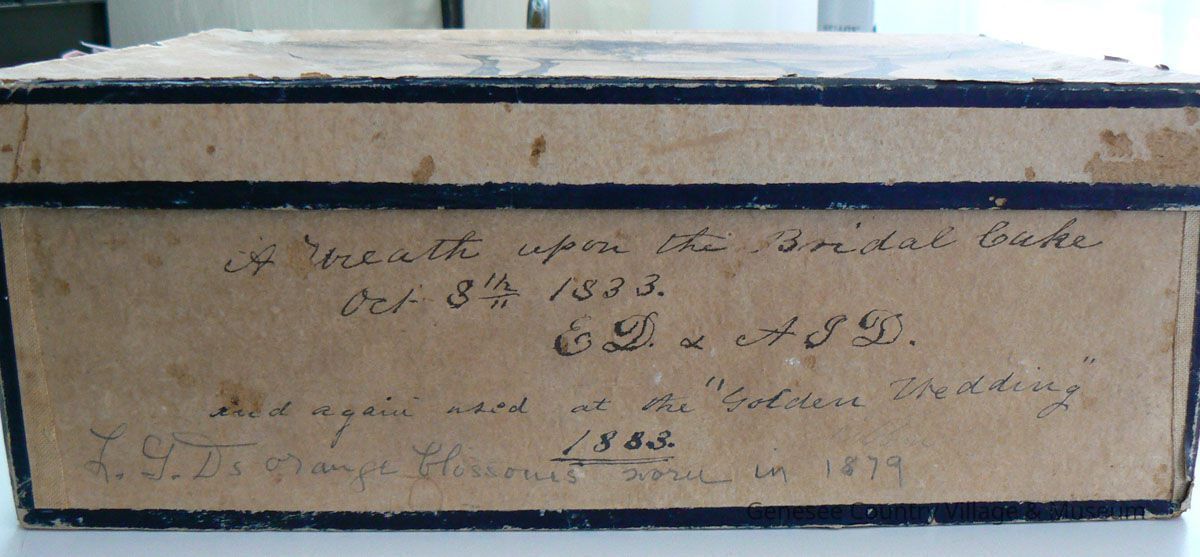 A Wreath upon the Bridal Cake
Oct 8th 1833.
E D. & A S D.
and again used at the "Golden Wedding"
1883.
L. G. Ds orange blossoms worn in 1879
Genesee Country Village & Museum